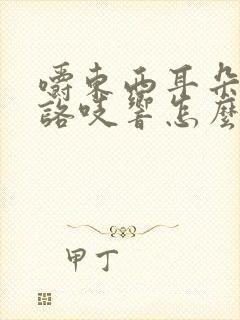 嚼東西耳朵
詻吱響怎麼
甲丁